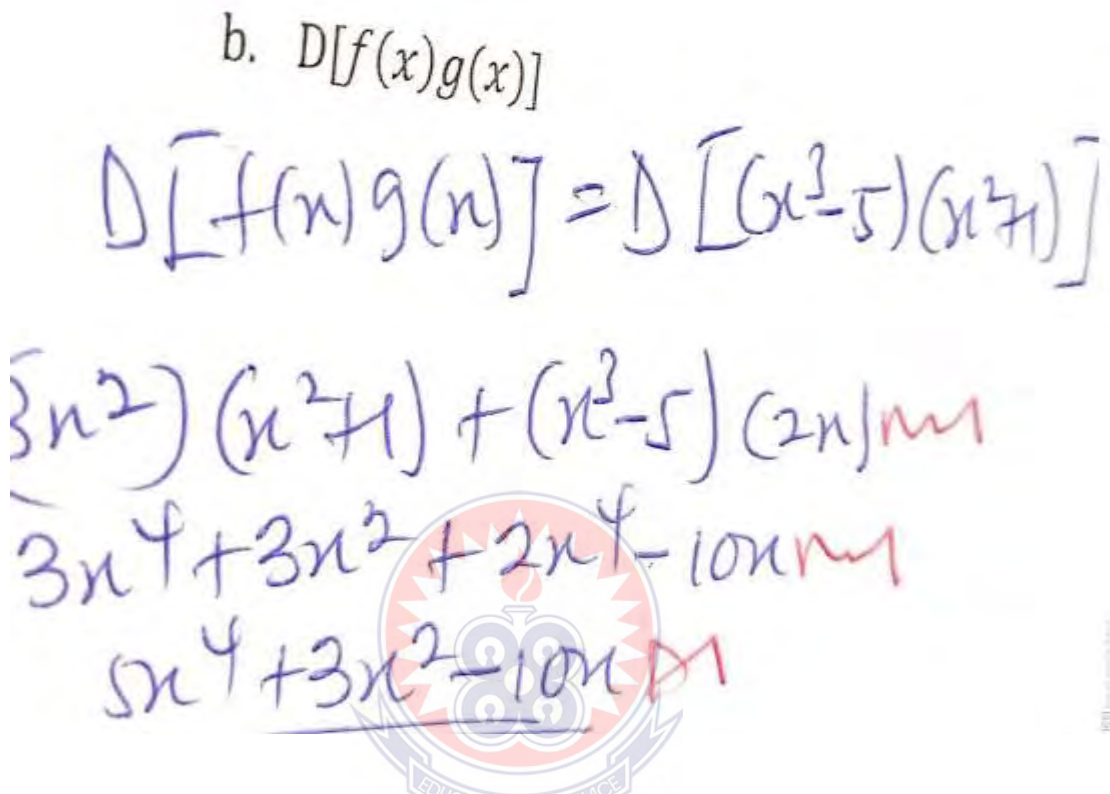 b. D[f(x)g(x)]
D[f(x)g(x)] = D[(x³-5)(x²+1)]
3x²)(x²+1) + (x³-5)(2x) M1
3x⁴+3x²+2x⁴-10x M1
5x⁴+3x²-10x A1